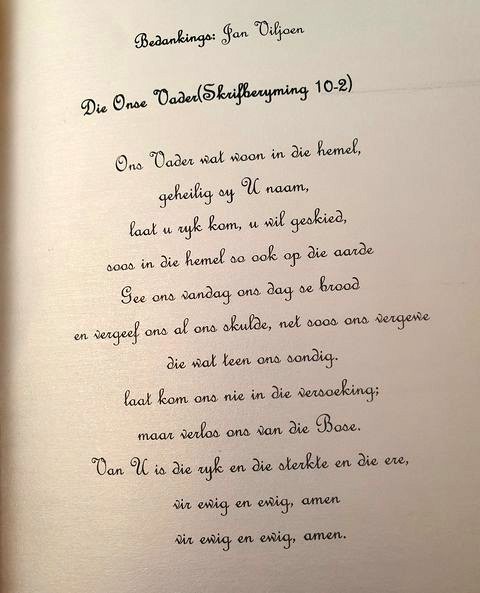 Bedankings: Jan Viljoen
Die Onse Vader(Skrifberyming 10-2)
Ons Vader wat woon in die hemel,
geheilig sy U naam,
laat u ryk kom, u wil geskied,
soos in die hemel so ook op die aarde
Gee ons vandag ons dag se brood
en vergeef ons al ons skulde, net soos ons vergewe
die wat teen ons sondig.
laat kom ons nie in die versoeking;
maar verlos ons van die Bose.
Van U is die ryk en die sterkte en die ere,
vir ewig en ewig, amen
vir ewig en ewig, amen.